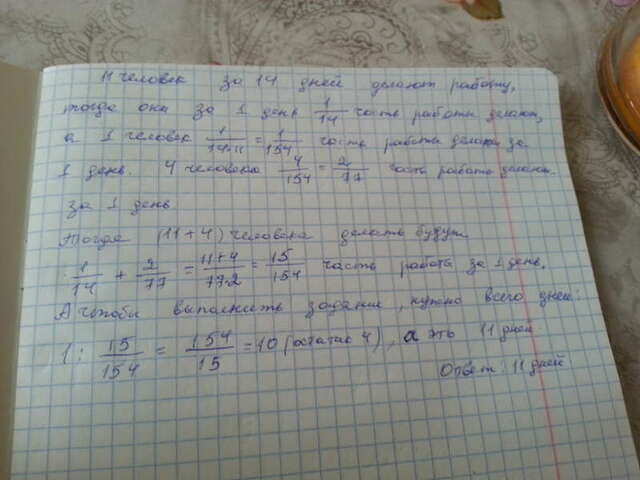 11 человек за 14 дней делают работу,
тогда они за 1 день 1/14 часть работы делают,
а 1 человек 1/14·11 = 1/154 часть работы делают за
1 день. 4 человека 4/154 = 2/77 часть работы делают
за 1 день
Тогда (11+4) человека делать будут
1/14 + 2/77 = 11+4/77·2 = 15/154 часть работы за 1 день.
А чтобы выполнить задание, нужно всего дней:
1 : 15/154 = 154/15 = 10 (остаток 4), а это 11 дней
Ответ: 11 дней